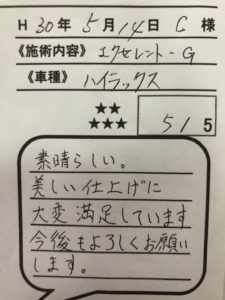 H 30年 5月 14日 C 様
《施術内容》エクセレント-G
《車種》ハイラックス
★★
★★★
5/5
素晴らしい。
美しい仕上げに
大変満足しています
今後もよろしくお願い
します。